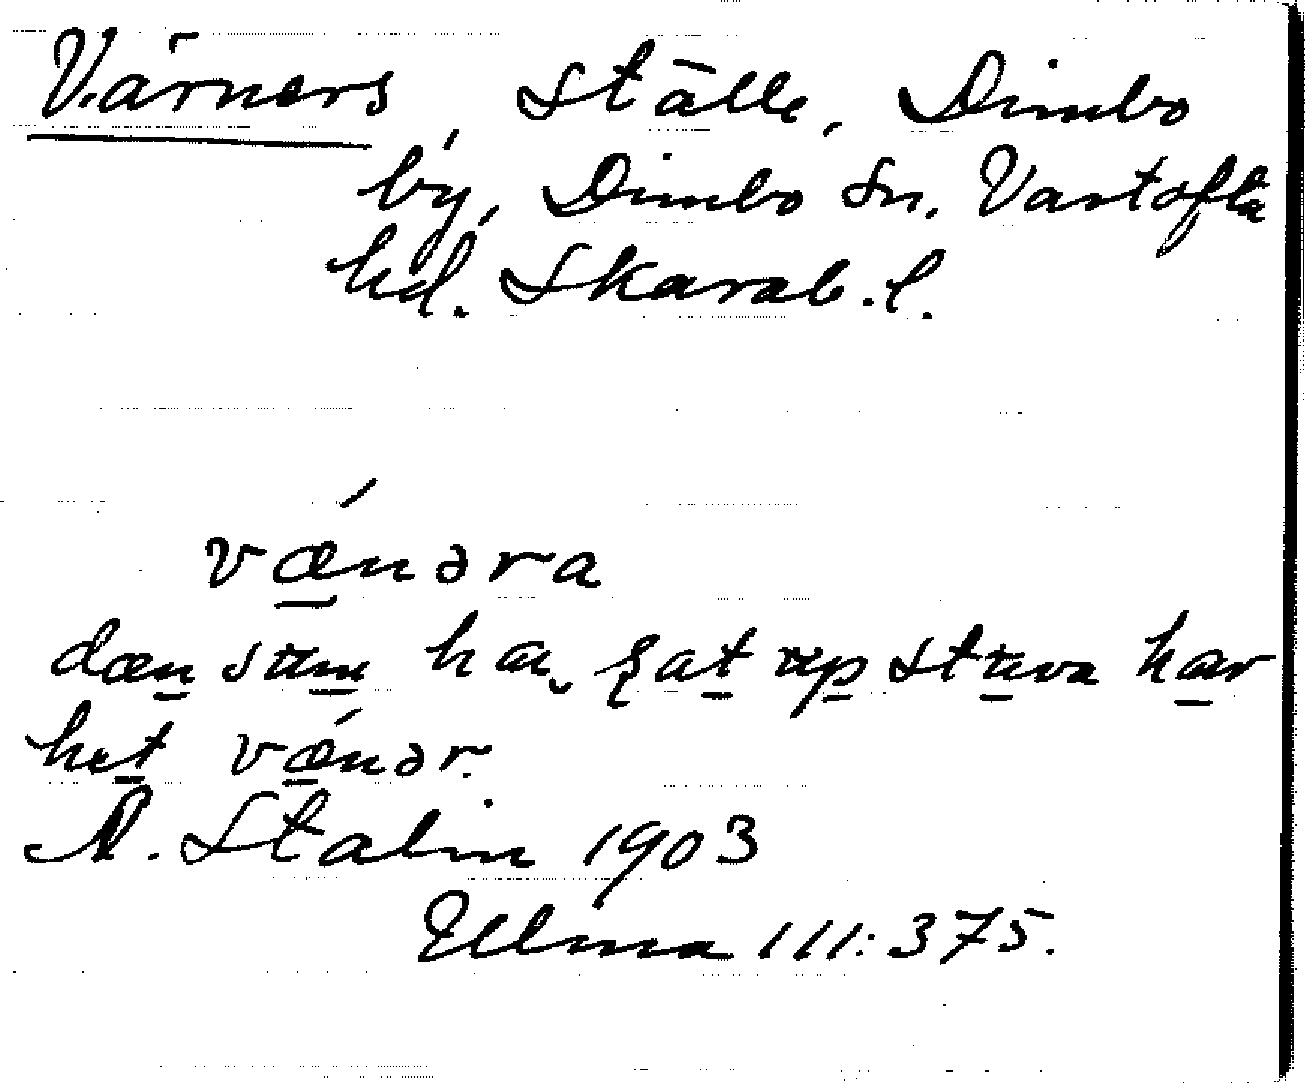 Värners, Ställe, Dimbo
by, Dimbo sn. Vartofta
hd. Skarab. l.
vǽnəra
dæn sum ha sat up stuva har
het vǽnər.
A. Stalin 1903
Ullma 111:375.